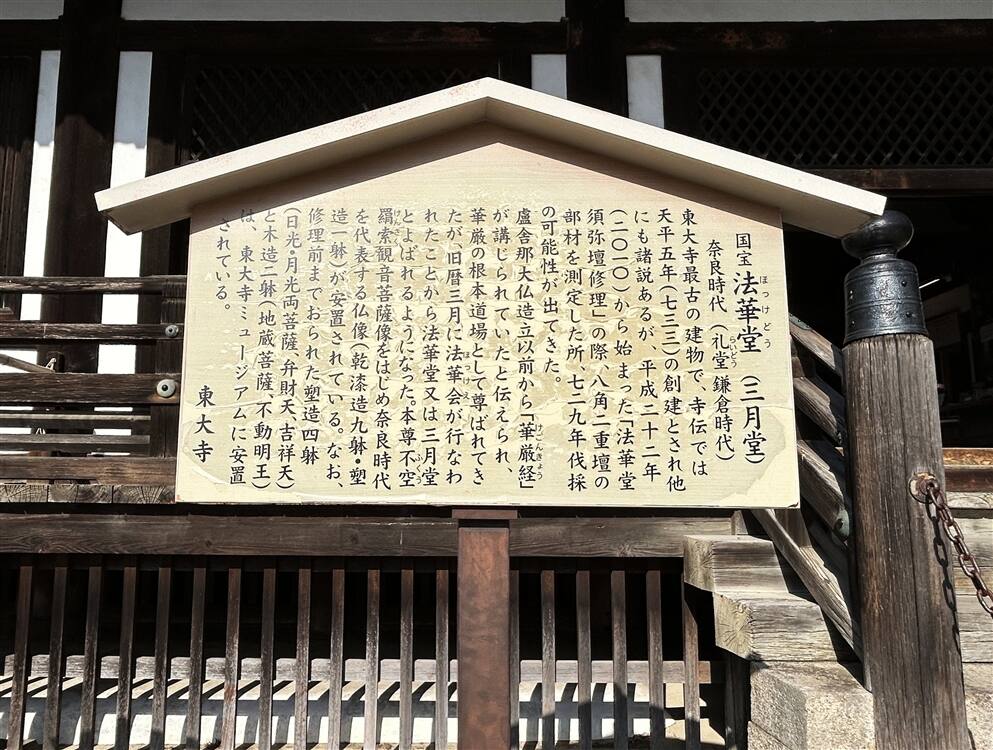 国宝 法華堂（三月堂）
ほっけどう
奈良時代（礼堂 鎌倉時代）
らいどう
東大寺最古の建物で、寺伝では
天平五年（七三三）の創建とされ他
にも諸説あるが、平成二十二年
（二〇一〇）から始まった「法華堂
須弥壇修理」の際、八角二重壇の
部材を測定した所、七二九年伐採
の可能性が出てきた。
盧舎那大仏造立以前から「華厳経」
けごんきょう
が講じられていたと伝えられ、
華厳の根本道場として尊ばれてき
たが、旧暦三月に法華会が行なわ
ほっけえ
れたことから法華堂又は三月堂
とよばれるようになった。本尊不空
ふくう
羂索観音菩薩像をはじめ奈良時代
けんさく
を代表する仏像（乾漆造九躰・塑
造一躰）が安置されている。なお、
修理前までおられた塑造四躰
（日光・月光両菩薩、弁財天・吉祥天）
と木造二躰（地蔵菩薩、不動明王）
は、東大寺ミュージアムに安置
されている。
東大寺